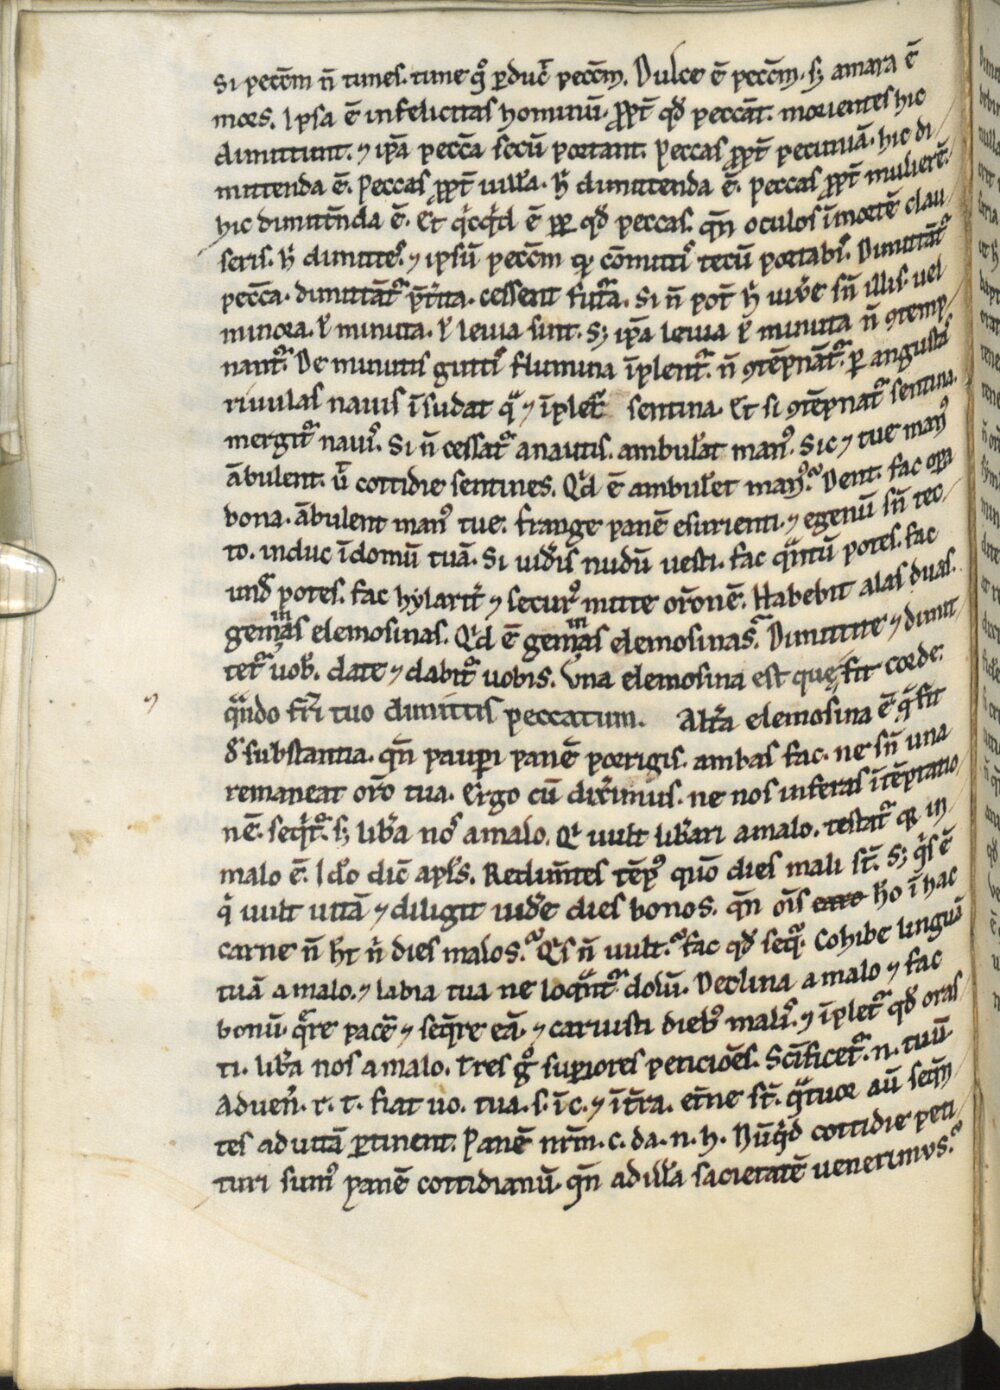 Si peccm̄ n̄ times. time qͦ ꝑduc̄ pecc̄m. Dulce ē pecc̄m. sꝫ amara ē
mors. Ipsa ē infelicitas hominū. ꝓpt̄ qđ peccāt. morientes hic
dimittunt. ⁊ ip̄a pecc̄a secū portant. Peccas ꝓpt̄ pecuniā. hic di
mittenda ē. Peccas ꝓpt̄ uill̄a. h̄ dimittenda ē. peccas ꝓpt̄ mulierē.
hic dimitt̄nda ē. Et qͥcqͥd ē ꝓp̄ qđ peccas. qn̄ oculos ī morte clau
seris. h̄ dimittes. ⁊ ipsū pecc̄m qͥ cōmittis tecū portabis. Dimittāt᷑
pecc̄a. dimittāt᷑ p̄t̄ita. cessent fut̄a. Si n̄ pot̄ h̄ uiu̾e sn̄ illis. uel
minora. ł minuta. ł leuia sunt. Sꝫ ip̄a leuia ł minuta n̄ ꝯtemp
nant᷑. De minutis guttis flumina īplent᷑. n̄ ꝯtēpnāt᷑. ꝑ angustas
riuulas nauis īsudat qͣ ⁊ īplet᷑ sentina. Et si ꝯtēpnat᷑ sentina.
mergit᷑ nauis. Si n̄ cessat᷑ a nautis. ambulāt manꝰ. Sic ⁊ tue manꝰ
ābulent. ūt cottidie sentines. Qͥd ē ambulēt manꝰ. Dent. fac opa
bona. ābulent manꝰ tue. frange panē esurienti. ⁊ egenū sn̄ tec
to. induc ī domū tuā. Si uid̾is nudū uesti. fac qͣntū potes. fac
und̄ potes. fac hylarit̾ ⁊ securꝰ mitte or̄onē. Habebit alas duas.
geminas elemosinas. Qͥd ē geminas elemosinas. Dimittite ⁊ dimit
tet᷑ uob̄. date ⁊ dabit᷑ uobis. Vna elemosina est quę fit corde.
qͣndo fr̄i tuo dimittis peccatum. Alt̾a elemosina ē q̄ fit
đ substantia. qn̄ paupi panē porrigis. ambas fac. ne sn̄ una
remaneat or̄o tua. Ergo cū dix̾imus. ne nos inferas ī tēptatio
nē. seqͥt᷑. sꝫ lib̾a nos a malo. Qͥ uult lib̾ari a malo. testat᷑ qͥ in
malo ē. Ido dic̄ apl̄s. Redim̄tes tēpꝰ quō dies mali st̄. Sꝫ qͥs ē
qͥ uult uitā ⁊ diligit uid̾e dies bonos. qn̄ oīs ho ī hac
carne n̄ h̄t n̄ dies malos. Qͥs n̄ uult. fac qđ seqͥ. Cohibe linguā
tuā a malo. ⁊ labia tua ne loqͣnt᷑ dolū. Declina a malo ⁊ fac
bonū. qͣre pacē ⁊ seqͥre eā. ⁊ caruisti diebꝰ malis. ⁊ īplet᷑ qđ oras
ti. lib̾a nos a malo. Tres gͦ supiores peticiōes. Sc̄ificet᷑. n. tuū.
Aduen̄. r. t. fiat uo. tua. s. ī c. ⁊ ī t̄ra. et̄ne st̄. qͣtuor aū seqn̄
tes ad uitā ꝑtinent. Panē nr̄m. c. da. n. h. Nūqͥd cottidie peti
turi sumꝰ panē cottidianū. qn̄ ad illā sacietatē uenerimus.